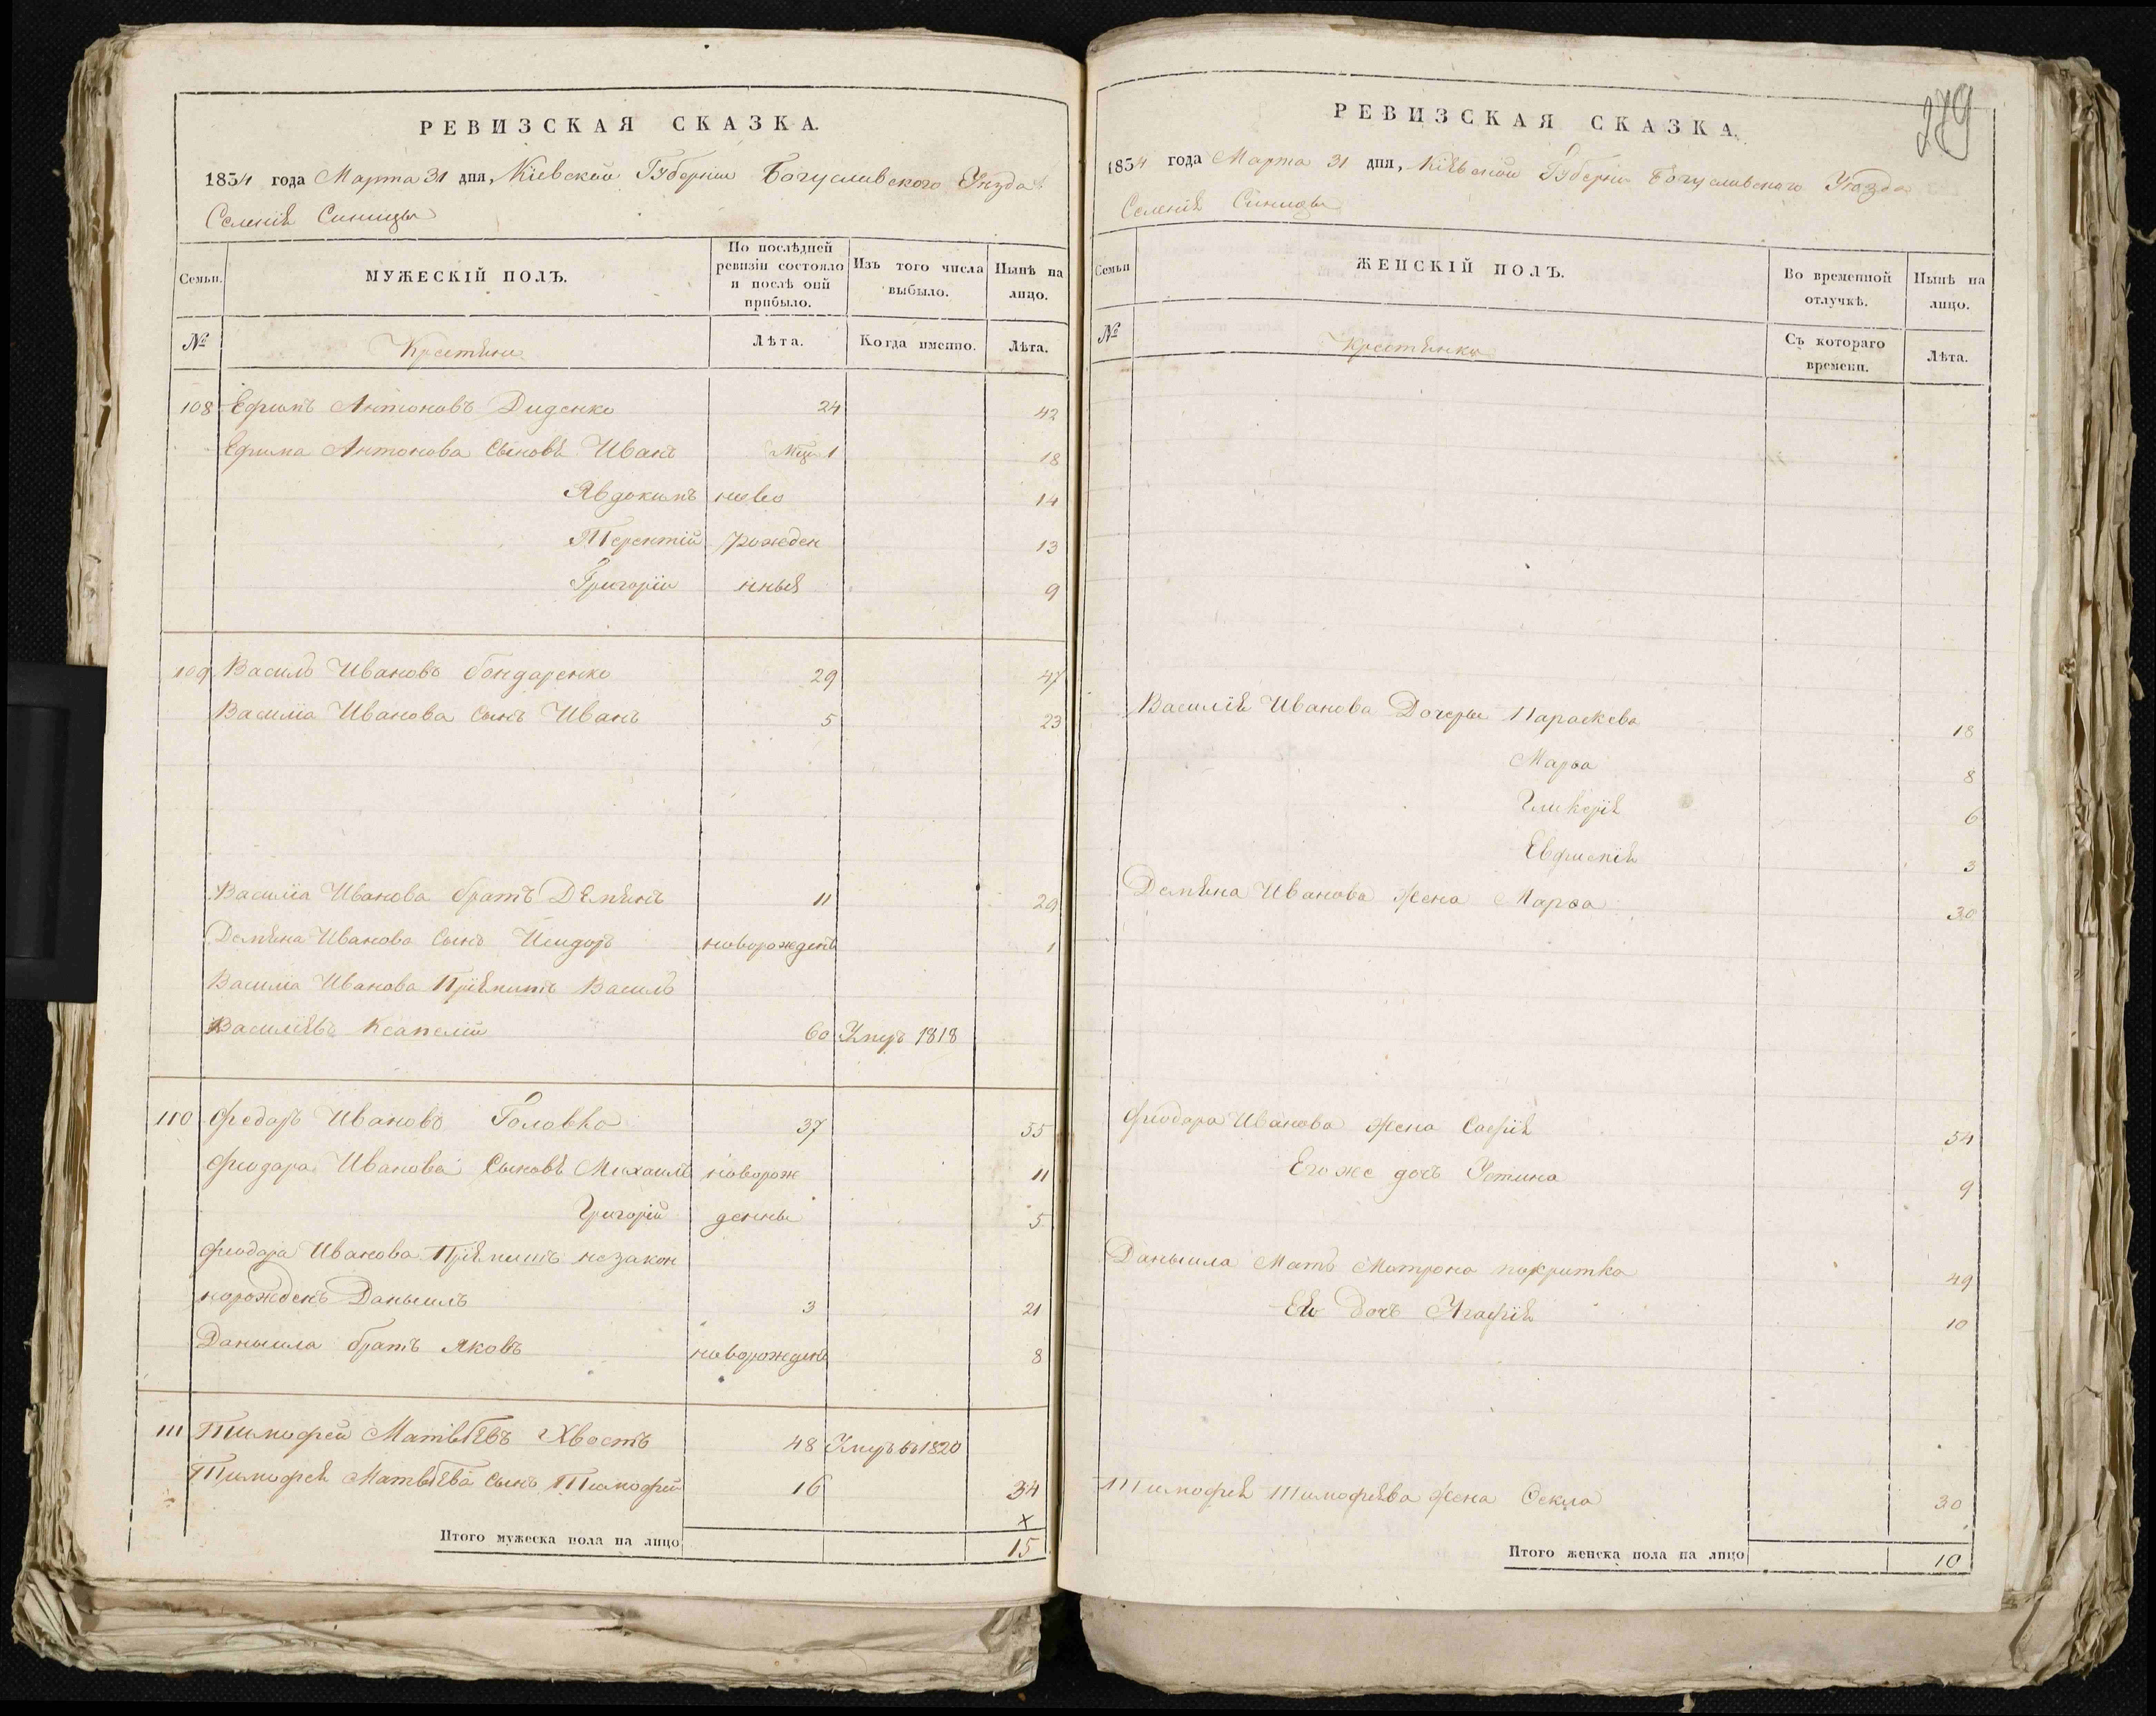 РЕВИЗСКАЯ СКАЗКА.
1834 года Марта 31 дня, Кіевской Губерніи Богуславского Уѣзда
Селенія Синицы
Семьи.
МУЖЕСКІЙ ПОЛЪ.
По послѣдней ревизіи состояло и послѣ оній прибыло.
Изъ того числа выбыло.
Нынѣ на лицо.
№
Крестяни
Лѣта.
Когда именно.
Лѣта.
108 Ефимъ Антоновъ Диденко 24 42
Ефима Антонова Сыновя Иванъ 1 18
Явдокимъ ново 14
Терентій рожден 13
Григорій нныя 9
109 Василь Ивановъ бондаренко 29 47
Василія Иванова Сынъ Иванъ 5 23
Василія Иванова братъ Демянъ 11 29
Демяна Иванова Сынъ Исидоръ новорожденъ 1
Василія Иванова Пріємишъ Василь
Василіевъ 60 Умеръ 1818
110 Федоръ Ивановъ Головко 37 55
Фиодора Иванова Сыновя Михаилъ новорож 11
Григорій денны 5
Фиодора Иванова Пріємишъ незакон
норожденъ Даныилъ 3 21
Даныила братъ Яковъ новорожденъ 8
111 Тимофей Матвѣевъ Хвостъ 48 Умеръ въ 1820
Тимофея Матвѣева Сынъ Тимофей 16 34
Итого мужеска пола на лицо 15
279
РЕВИЗСКАЯ СКАЗКА.
1834 года Марта 31 дня, Кіевской Губерніи Богуславского Уѣзда
Селенія Синицы
Семьи
ЖЕНСКІЙ ПОЛЪ.
Во временной отлучкѣ.
Нынѣ на лицо.
№
Крестянки
Съ котораго времени.
Лѣта.
Василія Иванова Дочеры Параскева 18
Марѳа 8
Гликерія 6
3
Демяна Иванова Жена Марѳа 30
Фиодора Иванова Жена Софія 54
Егоже дочь Устина 9
Даныила Мать Матрона покритка 49
Ея Дочь Агафія 10
Тимофея Тимофеева Жена Фекла 30
Итого женска пола на лицо 10